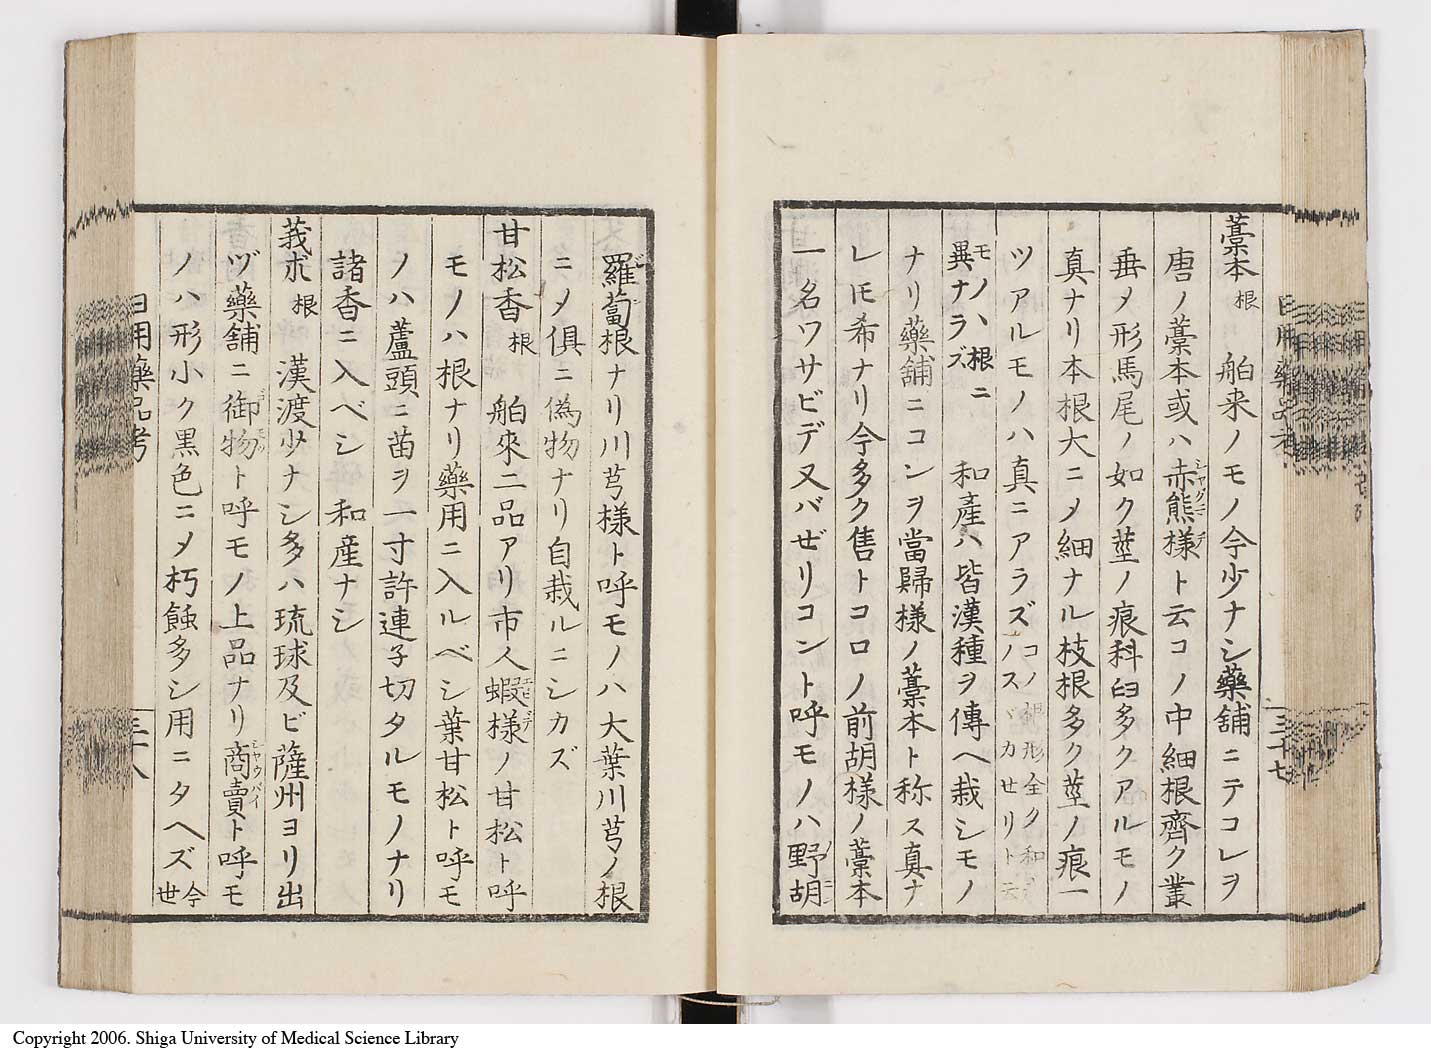 藁本根　舶来ノモノ今少ナシ藥舗ニテコレヲ
唐ノ藁本或ハ赤熊様ト云コノ中細根齊ク叢
垂〆形馬尾ノ如ク莖ノ痕科臼多クアルモノ
真ナリ本根大ニ〆細ナル枝根多ク莖ノ痕一
ツアルモノハ真ニアラズ コノ根形全ク和
ノスヾカせリト云
モノハ根ニ
異ナラズ　和產ハ皆漢種ヲ傳へ栽シモノ
ナリ藥舗ニコンヲ當歸様ノ藁本ト称ス真ナ
レ𪜈希ナリ今多ク售トコロノ前胡様ノ藁本
一名ワサビデ又バぜリコント呼モノハ野胡
羅蔔根ナリ川芎様ト呼モノハ大葉川芎ノ根
ニ〆俱ニ偽物ナリ自栽ルニシカズ
甘松香根　舶來二品アリ市人蝦様ノ甘松ト呼
モノハ根ナリ藥用ニ入ルベシ葉甘松ト呼モ
ノハ蘆頭ニ苗ヲ一寸許連子切タルモノナリ
諸香ニ入ベシ和産ナシ
莪朮根　漢渡少ナシ多ハ琉球及ビ薩州ヨリ出
ヅ藥舗ニ御物ト呼モノ上品ナリ商賣ト呼モ
ノハ形小ク黒色ニ〆朽蝕多シ用ニタヘズ 今
世
日用藥品考
三十七
日用藥品考
三十八
Copyright 2006. Shiga University of Medical Science Library